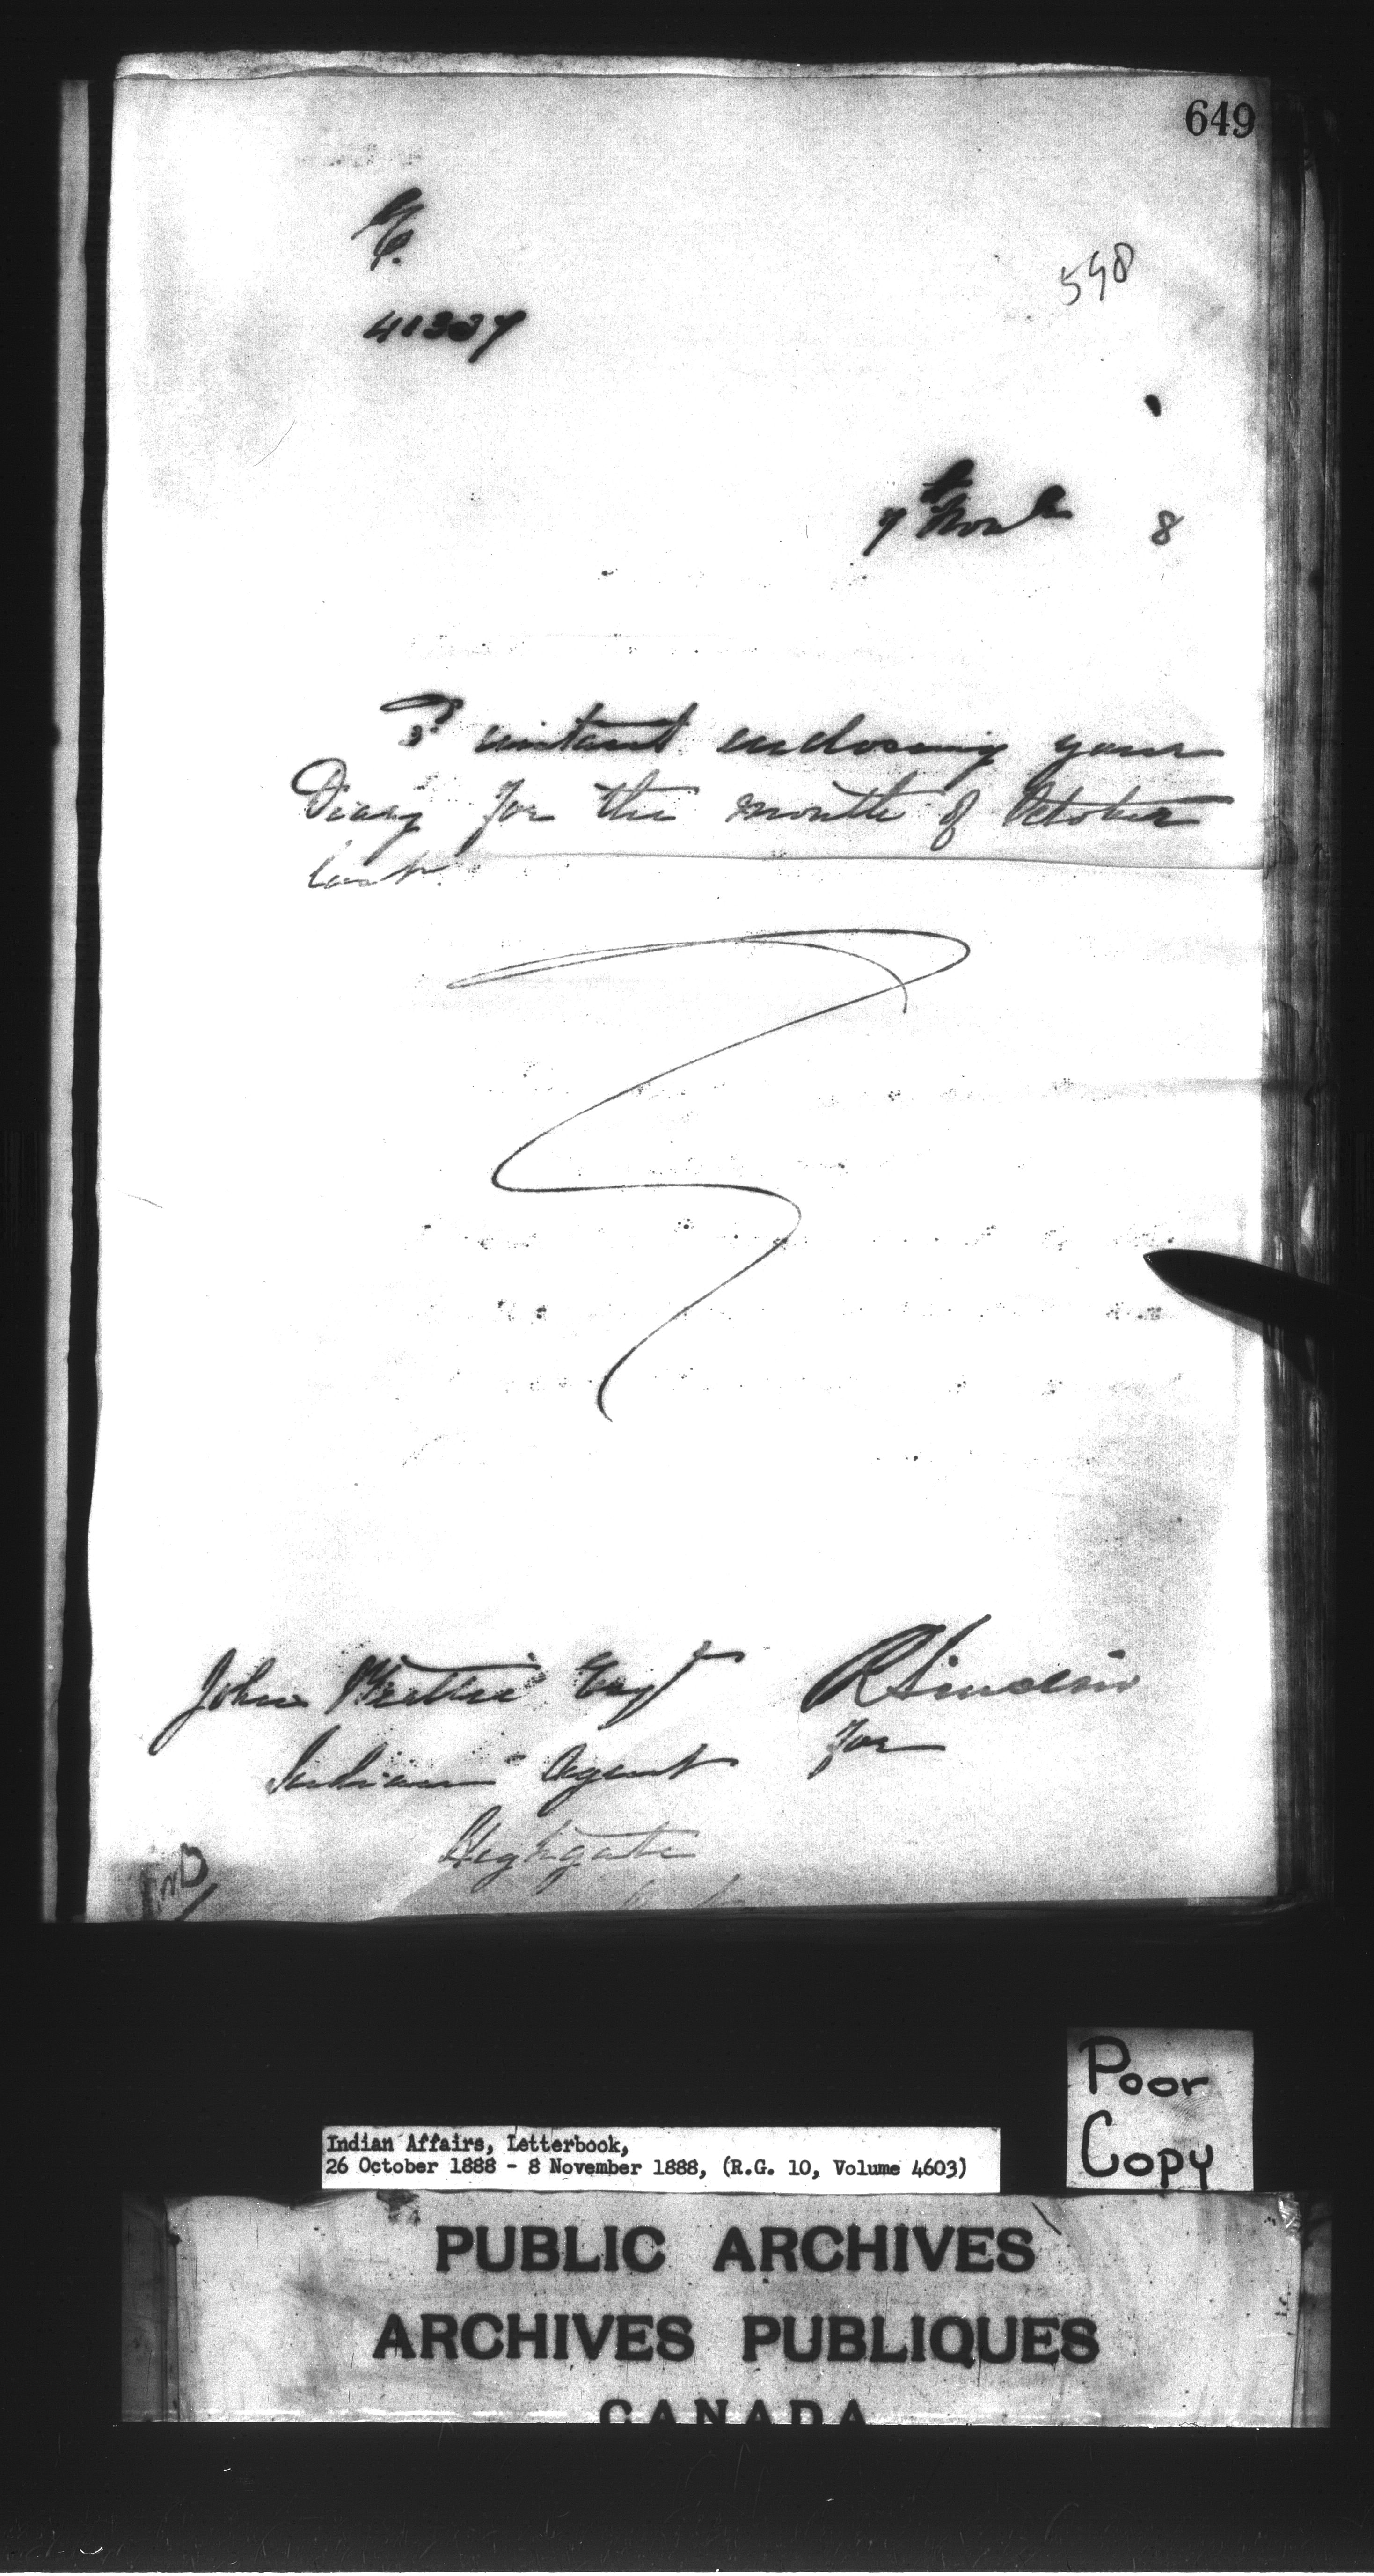 649
598
41307
7th Novr 8
3rd instant enclosing your
Diary for the month of October
last.
John Beattie Esqr
R Sinclair
Indian Agent
for
Highgate
Poor
Copy
Indian Affairs, Letterbook,
26 October 1888 - 8 November 1888, (R.G. 10, Volume 4603)
PUBLIC ARCHIVES
ARCHIVES PUBLIQUES
CANADA